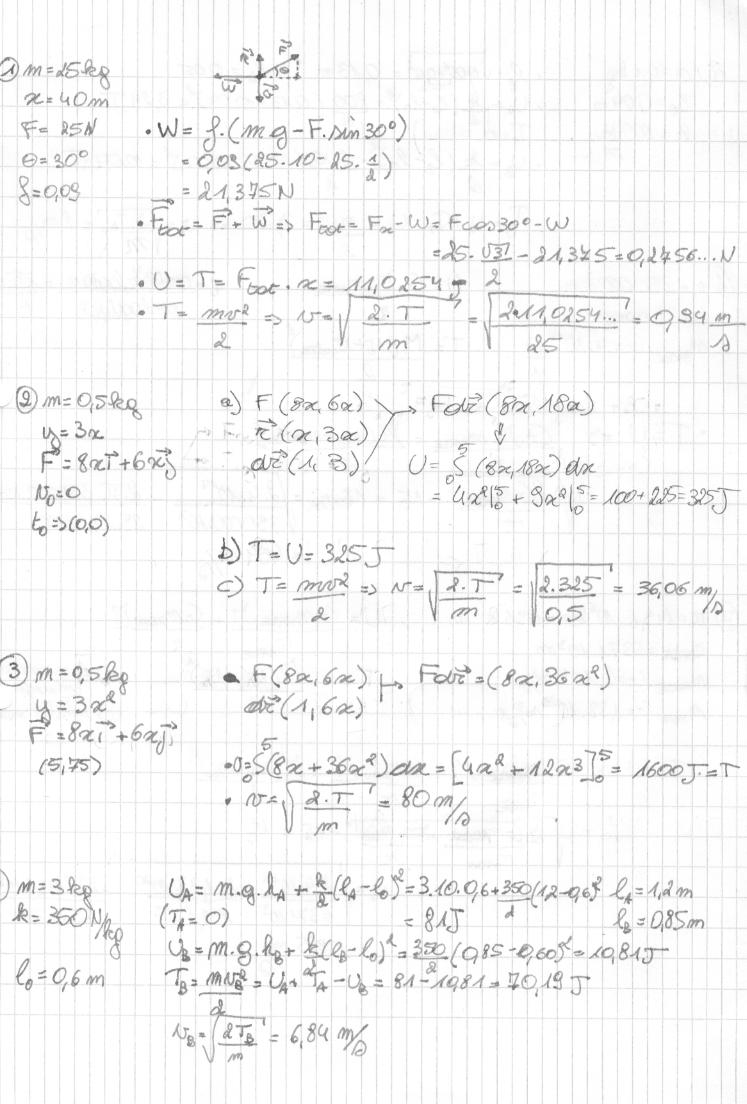 ① m=25kg
x=40m
F=25N
θ=30°
f=0,09
F⃗
θ
W⃗
G⃗
• W= f.(mg-F.sin30°)
= 0,09(25.10-25.1/2)
= 21,375N
• F⃗tot= F⃗+W⃗ => Ftot= Fx-W= Fcos30°-W
=25.√3/2 - 21,375=0,2756...N
• U=T= Ftot.x= 11,0254 J
• T= mv²/2 => v=√(2.T/m) = √(2.11,0254.../25) = 0,94 m/s
② m=0,5kg
y=3x
F⃗=8xi⃗+6xj⃗
v₀=0
t₀=>(0,0)
a) F(8x,6x)
r⃗(x,3x)
dr⃗(1,3)
Fdr⃗(8x,18x)
⇓
U=₀∫⁵(8x,18x)dx
= 4x²|₀⁵ + 9x²|₀⁵=100+225=325J
b) T=U=325J
c) T= mv²/2 => v=√(2.T/m) = √(2.325/0,5) = 36,06 m/s
③ m=0,5kg
y=3x²
F⃗=8xi⃗+6xj⃗
(5,75)
• F(8x,6x)
dr⃗(1,6x)
Fdr⃗=(8x,36x²)
• U=₀∫⁵(8x+36x²)dx=[4x²+12x³]₀⁵= 1600J=T
• v=√(2.T/m) = 80m/s
m=3kg
k=350N/kg
l₀=0,6m
UA= m.g.hA + k/2(lA-l₀)²=3.10.0,6+350/2(1,2-0,6)² lA=1,2m
(TA=0) = 81J lB=0,85m
UB=m.g.hB+k/2(lB-l₀)²=350/2(0,85-0,60)²=10,81J
TB=mvB²/2=UA+TA-UB=81-10,81=70,19J
vB=√(2TB/m) = 6,84 m/s